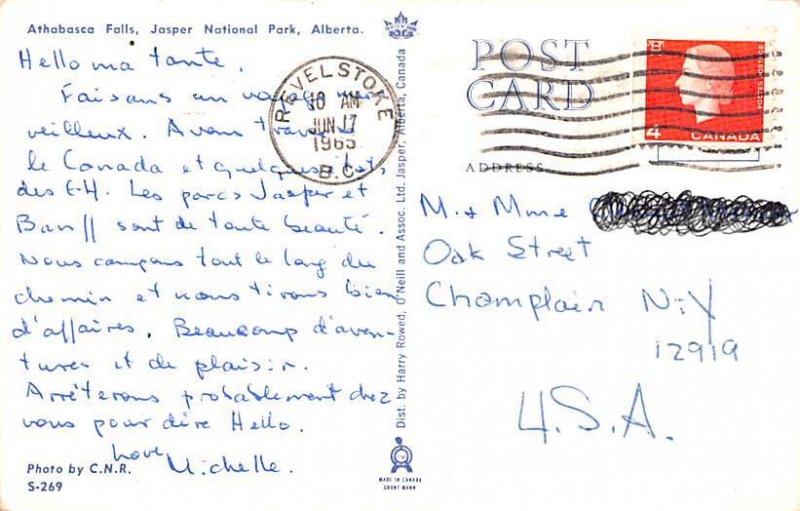 Athabasca Falls, Jasper National Park, Alberta.
Hello ma tante,
Faisons un voyage mer-
veilleux. Avons traversé
le Canada et quelques états
des E-U. Les parcs Jasper et
Banff sont de toute beauté.
Nous campons tout le long du
chemin et nous tirons bien
d'affaires. Beaucoup d'aven-
tures et de plaisir.
Arrêterons probablement chez
vous pour dire Hello.
Love
Michelle.
Photo by C.N.R.
S-269
Dist. by Harry Rowed, O'Neill and Assoc. Ltd. Jasper, Alberta, Canada
MADE IN CANADA
GRANT MANN
REVELSTOKE
10 AM
JUN 17
1965
B.C.
POST
CARD
ADDRESS
4
CANADA
POSTES POSTAGE
M. & Mme
Oak Street
Champlain N.Y
12919
U.S.A.